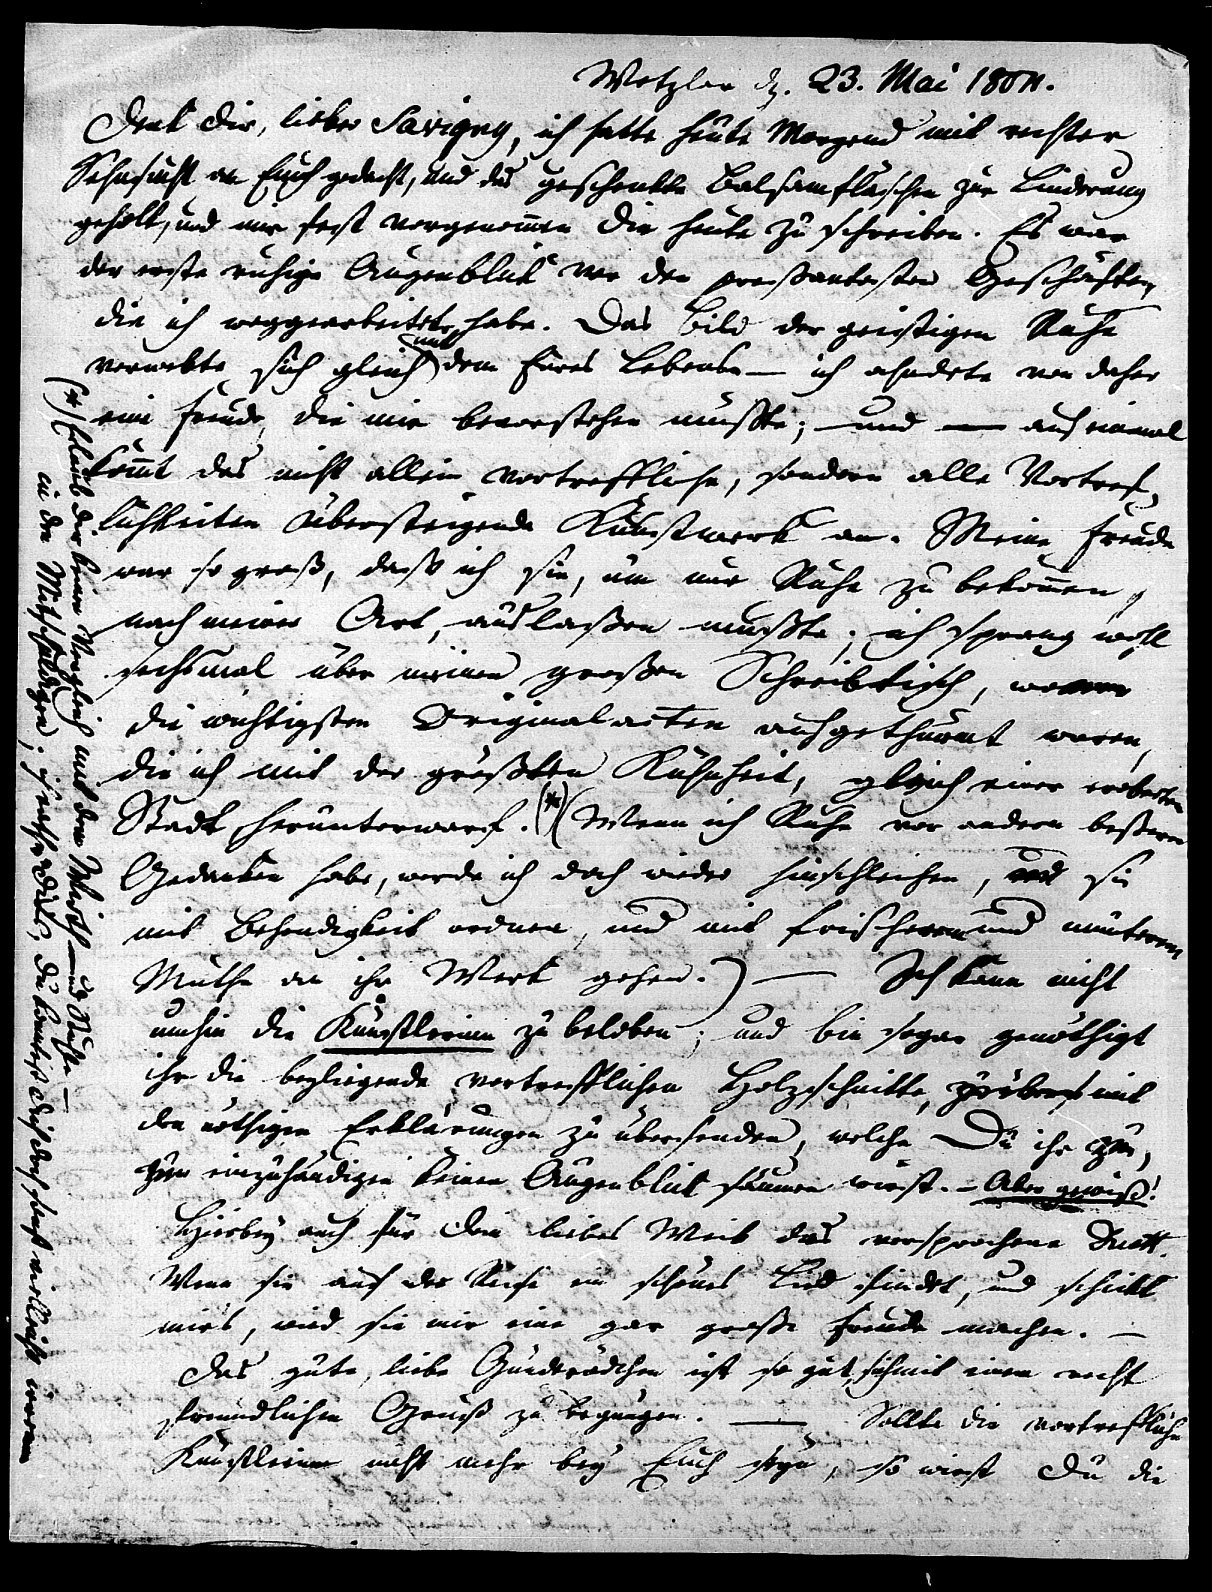 Wetzlar dz. 23. Mai 1804.
Denk dir, lieber Savigny, ich hatte heute Morgend mit rechter
Sehnsucht an Euch gedacht, und das geschenkte Balsamfläschen zur Linderung
geholt, und mir fest vorgenom̄en Dir heute zu schreiben. Es war
der erste ruhige Augenblik vor den preßantesten Geschäften,
die ich weggearbeitet habe. Das Bild der geistigen Ruhe
verwebte sich gleich mit dem Eures Lebens — ich ahndete von daher
eine Freude, die mir bevorstehen müßte; — und — auf einmal
kom̄t das nicht allein vortreffliche, sondern alle Vortref-
lichkeiten übersteigende Kunstwerk an. Meine Freude
war so groß, daß ich sie, um nur Ruhe zu bekom̄en,
nach meiner Art, auslaßen mußte; ich sprang wohl
sechsmal über meinen großen Schreibtisch, worauf
die wichtigsten Originalacten aufgethürmt waren,
die ich mit der größten Kühnheit, gleich einer eroberten
Stadt, herunterwarf. (*) (Wenn ich Ruhe vor andern beßeren
Gedanken habe, werde ich doch wieder hinschleichen, und sie
mit Behendigkeit ordnen, und mit frischerem und munterem
Muthe an ihr Werk gehen.) — Ich kann nicht
umhin die Künstlerinn zu beloben; und bin sogar genöthigt
ihr die beyliegende vortrefflichen Holzschnitte, mit
den nöthigen Erklärungen zu übersenden, welche Du ihr
einzuhändigen keinen Augenblik säumen wirst. – Aber gewiß!
Hierbey auch für Dein liebes Weib das versprochene Duett.
Wenn sie auf der Reise ein schönes Lied findet, und schikt
mirs, wird sie mir eine gar große Freude machen. —
Das gute, liebe Günderödchen ist so gut, mit einem recht
freundlichen Gruß zu begnügen. — Sollte die vortreffliche
Künstlerinn nicht mehr bey Euch seyn, so wirst Du die
(*) Erlaub dir keinen Vergleich mit dem Wirth und Ruhe —
in den Mitschuldigen; du kom̄st doch sonst vielleicht